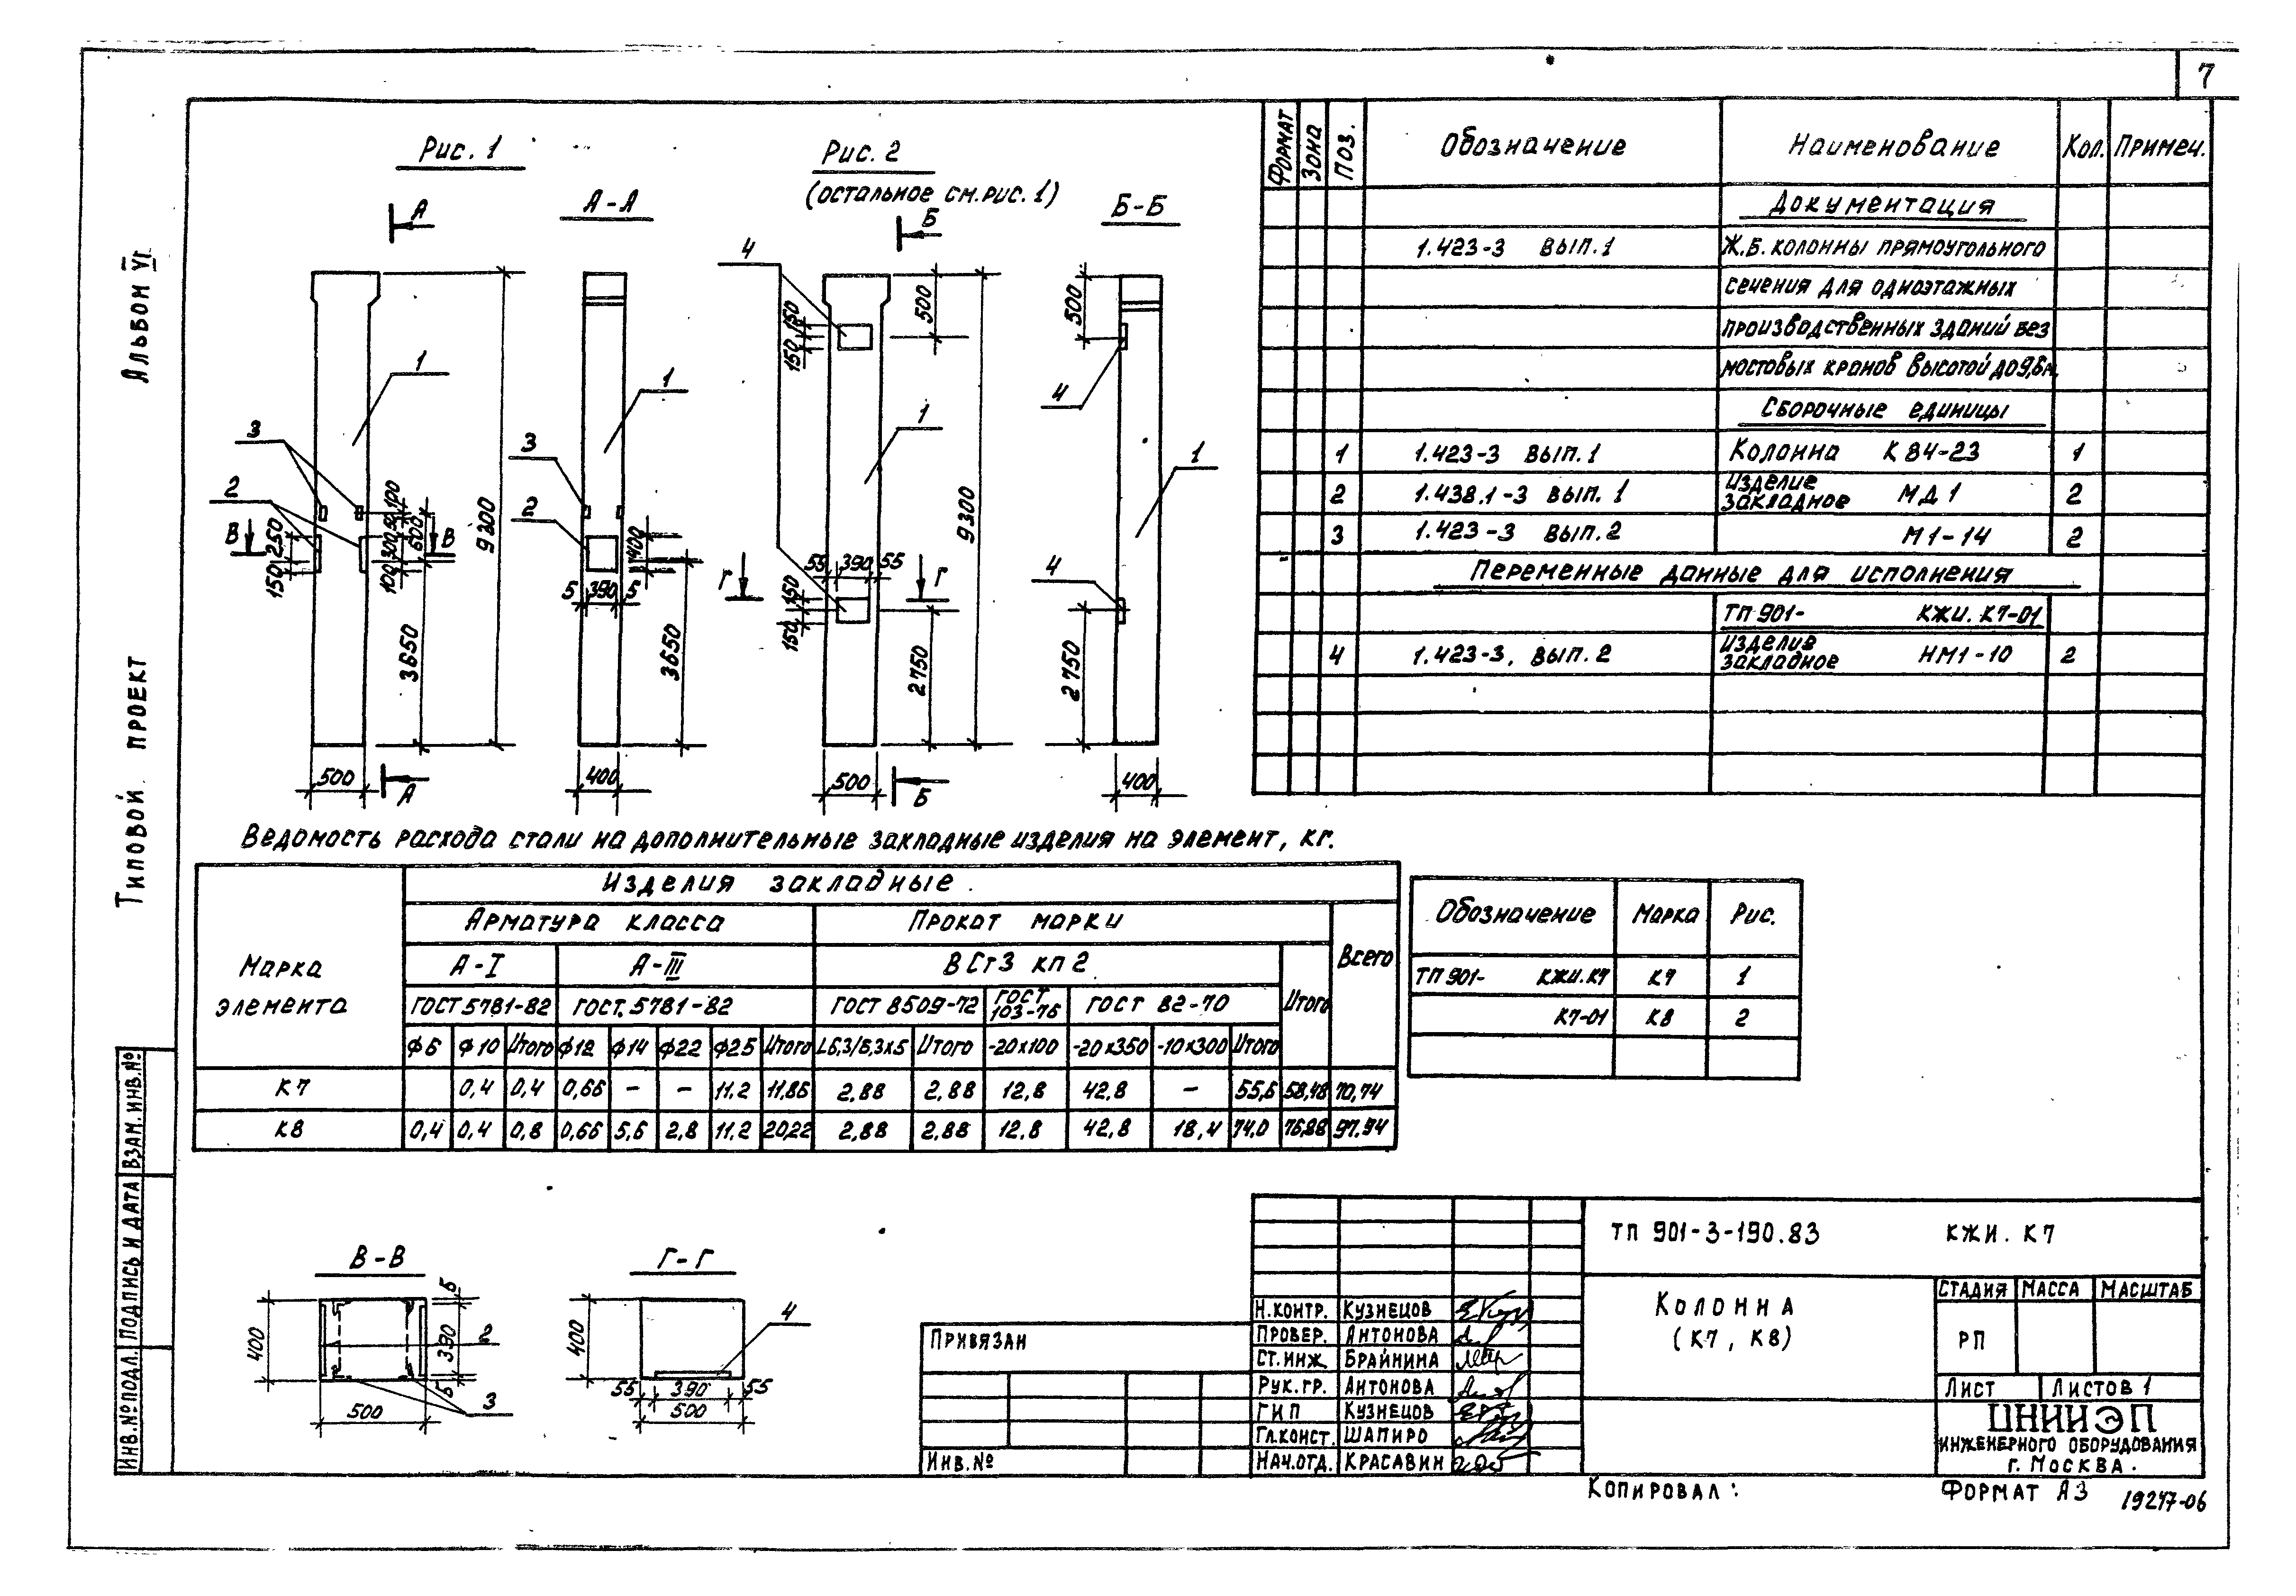 7
Альбом VI
Типовой проект
Рис. 1
А
А-А
Рис. 2
(остальное см. рис. 1)
Б
Б-Б
1
3
2
В
В
100
50
300
100
600
250
150
9300
3650
500
А
1
3
2
400
5 390 5
3650
400
4
150
150
500
1
9300
55 390 55
Г
Г
150
150
2750
500
Б
500
4
1
4
2750
400
Формат
Зона
Поз.
Обозначение
Наименование
Кол.
Примеч.
Документация
1.423-3 вып. 1 Ж.б. колонны прямоугольного
сечения для одноэтажных
производственных зданий без
мостовых кранов высотой до 9,6 м.
Сборочные единицы
1 1.423-3 вып. 1 Колонна К 84-23 1
2 1.438.1-3 вып. 1 Изделие закладное МД 1 2
3 1.423-3 вып. 2 М1-14 2
Переменные данные для исполнения
ТП 901- КЖИ. К7-01
4 1.423-3, вып. 2 Изделие закладное НМ1-10 2
Ведомость расхода стали на дополнительные закладные изделия на элемент, кг.
Марка элемента
Изделия закладные.
Арматура класса
Прокат марки
Всего
А-I
А-III
ВСт3 кп 2
Итого
ГОСТ 5781-82
ГОСТ. 5781-82
ГОСТ 8509-72
ГОСТ 103-76
ГОСТ 82-70
ф6 ф10 Итого ф12 ф14 ф22 ф25 Итого L6,3/6,3х5 Итого -20х100 -20х350 -10х300 Итого
К7 0,4 0,4 0,66 - - 11,2 11,86 2,88 2,88 12,8 42,8 - 55,6 58,48 70,74
К8 0,4 0,4 0,8 0,66 5,6 2,8 11,2 20,22 2,88 2,88 12,8 42,8 18,4 74,0 76,88 97,94
Обозначение Марка Рис.
ТП 901- КЖИ. К7 К7 1
К7-01 К8 2
В-В
400
5
390
5
500
2
3
Г-Г
400
55 390 55
500
4
Взам. инв. №
Подпись и дата
Инв. № подл.
Привязан
Инв. №
Н. контр. Кузнецов
Провер. Антонова
Ст. инж. Брайнина
Рук. гр. Антонова
ГИП Кузнецов
Гл. конст. Шапиро
Нач. отд. Красавин
ТП 901-3-190.83 КЖИ. К7
Колонна
(К7, К8)
Стадия Масса Масштаб
РП
Лист Листов 1
ЦНИИЭП
инженерного оборудования
г. Москва.
Копировал:
Формат А3
19247-06